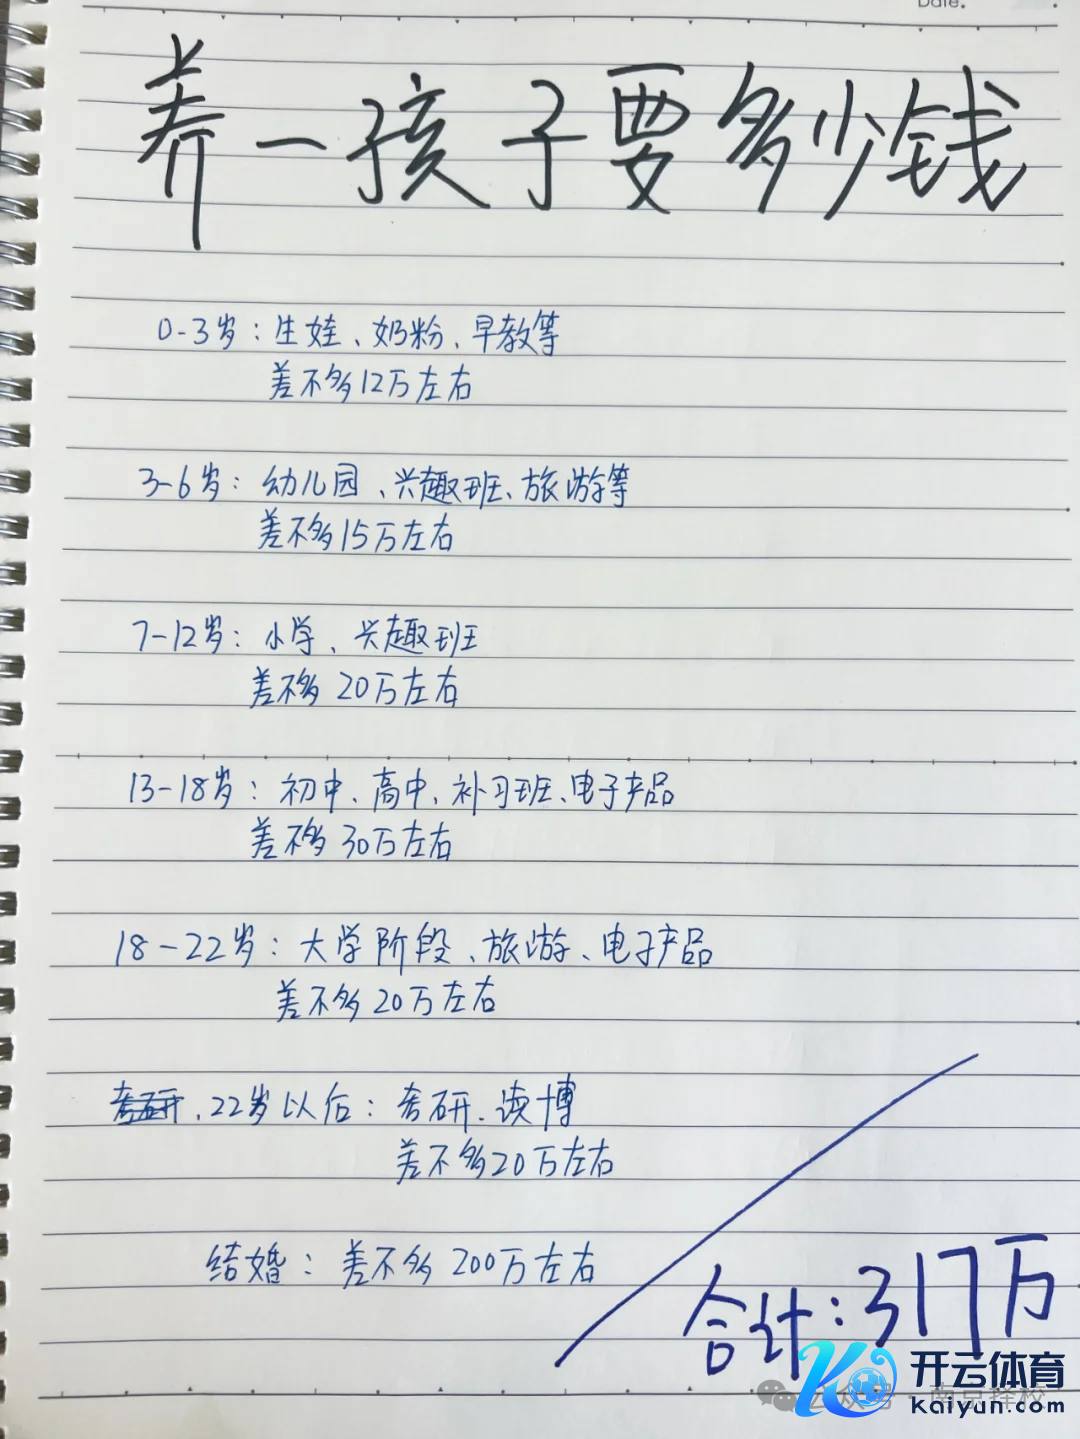 Date.
养一孩子要多少钱
0-3岁：生娃、奶粉、早教等
差不多12万左右
3-6岁：幼儿园、兴趣班、旅游等
差不多15万左右
7-12岁：小学、兴趣班
差不多 20万左右
13-18岁：初中、高中、补习班、电子产品
差不多 30万左右
18-22岁：大学阶段、旅游、电子产品
差不多20万左右
考研、22岁以后：考研、读博
差不多20万左右
结婚：差不多 200万左右
合计：317万
公众号·南京择校
开云体育
kaiyun.com